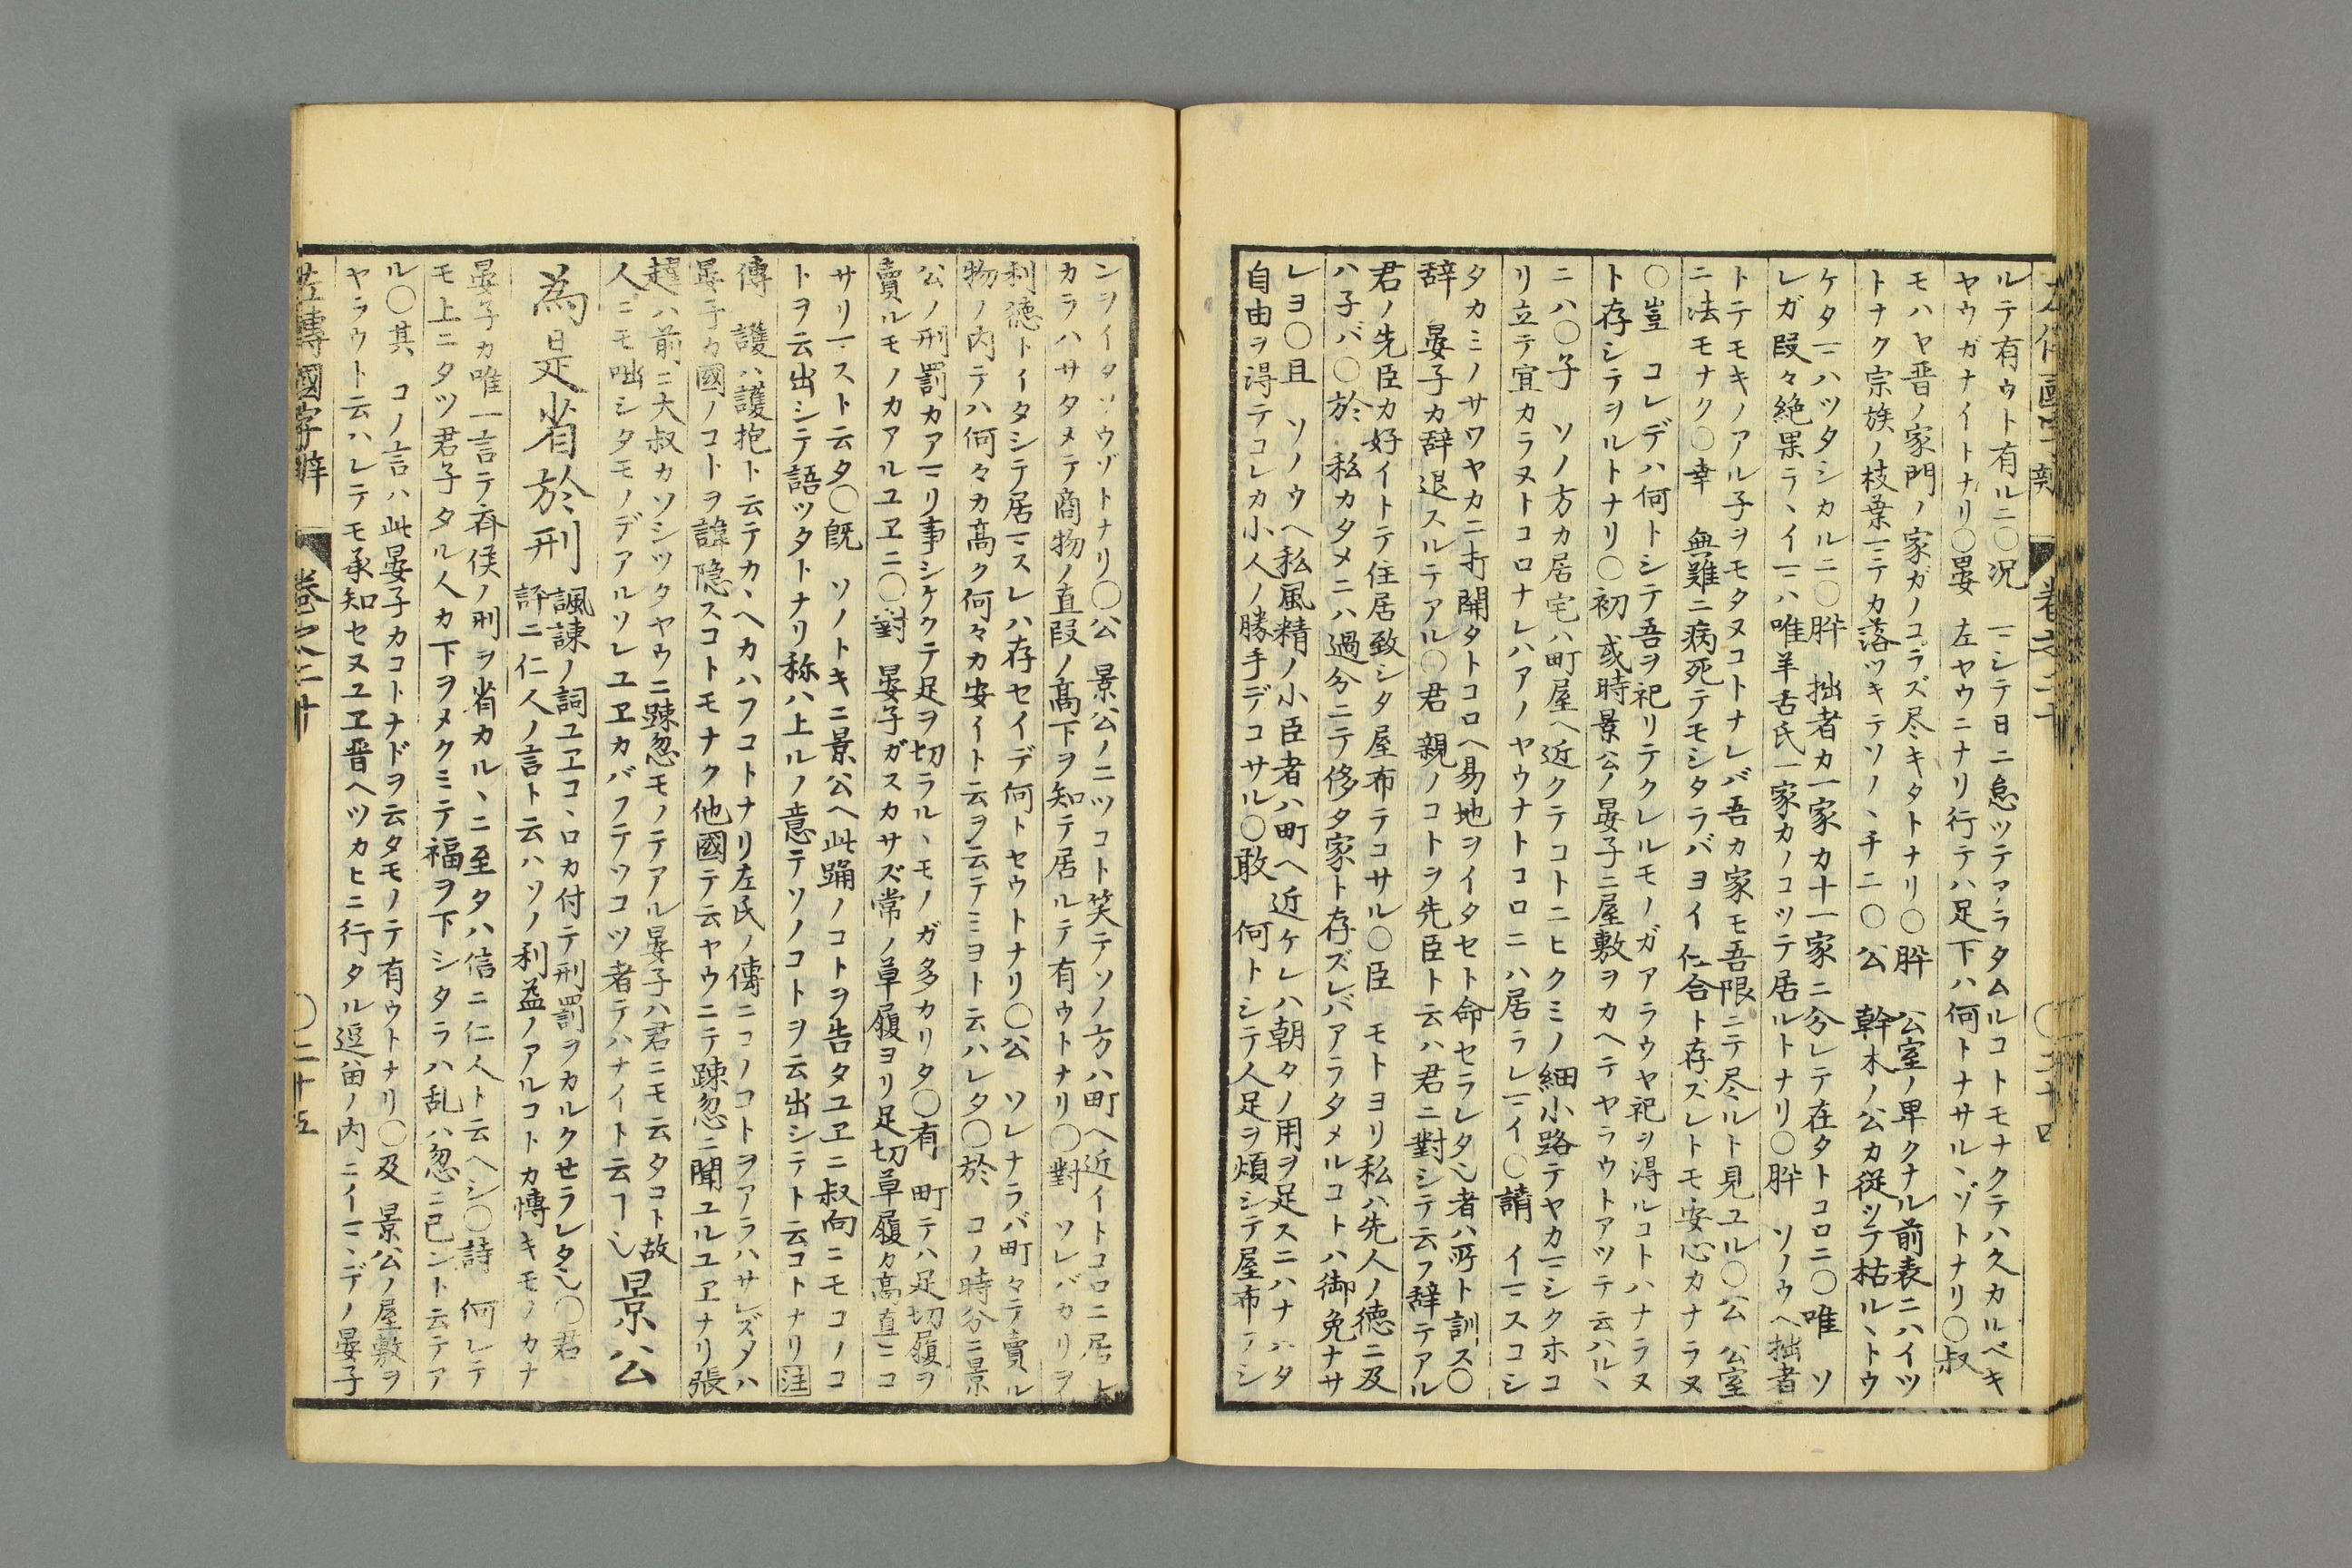 ルテ有ウト有ルニ〇况　マシテ日ニ怠ツテアラタムルコトモナクテハ久カルベキ
ヤウガナイトナリ〇晏　左ヤウニナリ行テハ足下ハ何トナサルヽゾトナリ〇叔
モハヤ晋ノ家門ノ家ガノコラズ尽キタトナリ〇肸　公室ノ卑クナル前表ニハイツ
トナク宗族ノ枝葉マテカ落ツキテソノヽチニ〇公　幹木ノ公カ従ツテ枯ルヽトウ
ケタマハツタシカルニ〇肸　拙者カ一家カ十一家ニ分レテ在タトコロニ〇唯　ソ
レガ段々絶果ラヽイマハ唯羊舌氏一家カノコツテ居ルトナリ〇肸　ソノウヘ拙者
トテモキノアル子ヲモタヌコトナレバ吾カ家モ吾限ニテ尽ルト見ユル〇公　公室
ニ法モナク〇幸　無難ニ病死テモシタラバヨイ仕合ト存ズレトモ安心カナラヌ
〇豈　コレデハ何トシテ吾ヲ祀リテクレルモノガアラウヤ祀ヲ得ルコトハナラヌ
ト存シテヲルトナリ〇初　或時景公ノ晏子ニ屋敷ヲカヘテヤラウトアツテ云ハルヽ
ニハ〇子　ソノ方カ居宅ハ町屋ヘ近クテコトニヒクミノ細小路テヤカマシクホコ
リ立テ宜カラヌトコロナレハアノヤウナトコロニハ居ラレマイ〇請　イマスコシ
タカミノサワヤカニ打開タトコロヘ易地ヲイタセト命セラレタ乀者ハ所ト訓ス〇
辞　晏子カ辞退スルテアル〇君　親ノコトヲ先臣ト云ハ君ニ對シテ云フ辞テアル
君ノ先臣カ好イトテ住居致シタ屋布テコサル〇臣　モトヨリ私ハ先人ノ德ニ及
ハ子バ〇於　私カタメニハ過分ニテ侈タ家ト存ズレバアラタメルコトハ御免ナサ
レヨ〇且　ソノウヘ私風精ノ小臣者ハ町ヘ近ケレハ朝夕ノ用ヲ足スニハナハタ
自由ヲ得テコレカ小人ノ勝手デコサル〇敢　何トシテ人足ヲ煩シテ屋布フシ
ンヲイタソウゾトナリ〇公　景公ノニツコト笑テソノ方ハ町ヘ近イトコロニ居レ
カラハサタメテ商物ノ直段ノ高下ヲ知テ居ルテ有ウトナリ〇對　ソレバカリヲ
利徳トイタシテ居マスレハ存セイデ何トセウトナリ〇公　ソレナラバ町々テ賣ル
物ノ内テハ何々カ高ク何々カ安イト云ヲ云テミヨト云ハレタ〇於　コノ時分ニ景
公ノ刑罰カアマリ事シケクテ足ヲ切ラルヽモノガ多カリタ〇有　町テハ足切履ヲ
賣ルモノカアルユヱニ〇對　晏子ガスカサズ常ノ草履ヨリ足切草履カ高直ニコ
サリマスト云タ〇旣　ソノトキニ景公ヘ此踊ノコトヲ告タユヱニ叔向ニモコノコ
トヲ云出シテ語ツタトナリ称ハ上ルノ意テソノコトヲ云出シテト云コトナリ注
傳　護ハ護抱ト云テカヽヘカハフコトナリ左氏ノ傳ニコノコトヲアラハサレズタハ
晏子カ國ノコトヲ諱隠スコトモナク他國テ云ヤウニテ踈忽ニ聞ユルユヱナリ張
趯ハ前ニ大叔カソシツタヤウニ踈忽モノテアル晏子ハ君ニモ云タコト故
人ニモ咄シタモノデアルソレユヱカバフテツコツ者テハナイト云フ乀　景公
為是省於刑　諷諫ノ詞ユヱコヽロカ付テ刑罰ヲカルクせラレタ乀〇君
評ニ仁人ノ言ト云ハソノ利益ノアルコトカ慱キモノカナ
晏子カ唯一言テ斉侯ノ刑ヲ省カルヽニ至タハ信ニ仁人ト云ヘシ〇詩　何レテ
モ上ニタツ君子タル人カ下ヲメクミテ福ヲ下シタラハ乱ハ忽ニ已ント云テア
ル〇其　コノ言ハ此晏子カコトナドヲ云タモノテ有ウトナリ〇及　景公ノ屋敷ヲ
ヤラウト云ハレテモ承知セヌユヱ晋ヘツカヒニ行タル逗畄ノ内ニイマヽデノ晏子
左傳國字辨　卷之二十　〇二十五